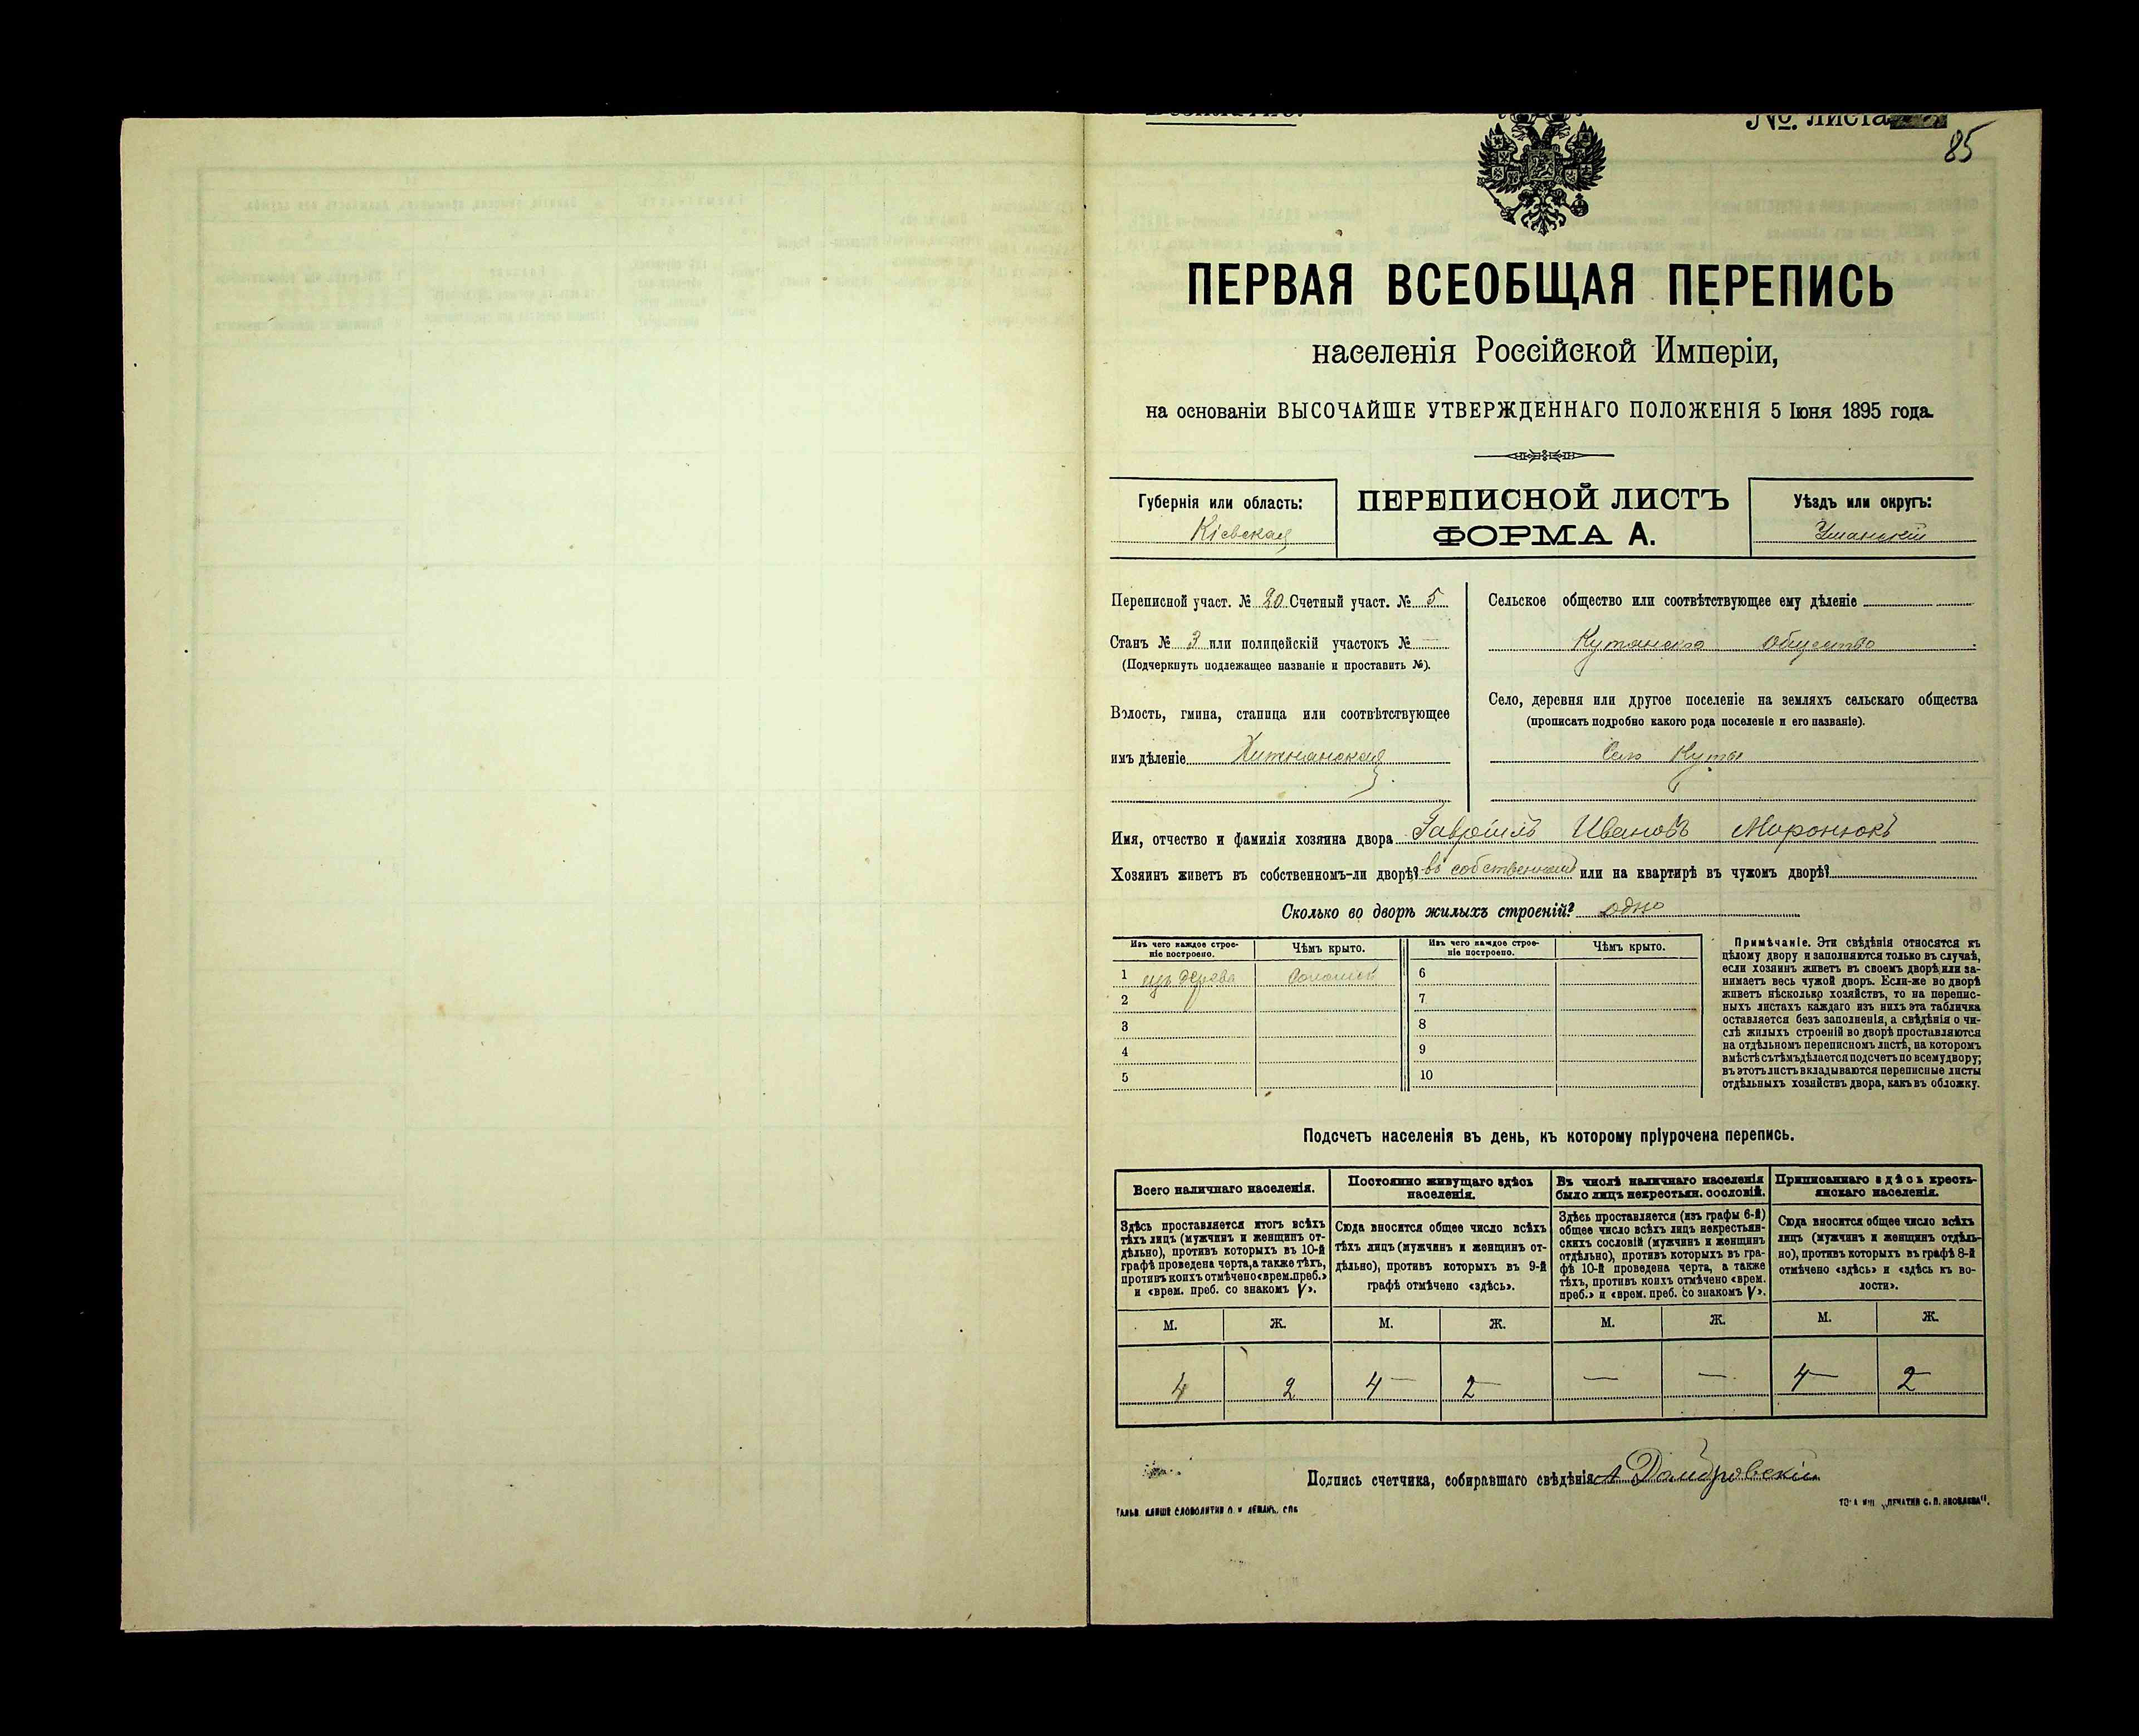 №. листа
85
ПЕРВАЯ ВСЕОБЩАЯ ПЕРЕПИСЬ
населенія Россійской Имперіи,
на основаніи ВЫСОЧАЙШЕ УТВЕРЖДЕННАГО ПОЛОЖЕНІЯ 5 Іюня 1895 года.
Губернія или область:
Кіевская
ПЕРЕПИСНОЙ ЛИСТЪ
ФОРМА А.
Уѣздъ или округъ:
Уманскій
Переписной участ. № 20 Счетный участ. № 5
Станъ № 3 или полицейскій участокъ № —
(Подчеркнуть подлежащее названіе и проставить №).
Волость, гмина, станица или соотвѣтствующее
имъ дѣленіе
Сельское общество или соотвѣтствующее ему дѣленіе
Кутянское Общество
Село, деревня или другое поселеніе на земляхъ сельскаго общества
(прописать подробно какого рода поселеніе и его названіе).
Село Куты
Имя, отчество и фамилія хозяина двора Гавріилъ Ивановъ Миронюкъ
Хозяинъ живетъ въ собственномъ-ли дворѣ? въ собственномъ или на квартирѣ въ чужомъ дворѣ?
Сколько во дворѣ жилыхъ строеній? одно
Изъ чего каждое строе-
ніе построено.
Чѣмъ крыто.
Изъ чего каждое строе-
ніе построено.
Чѣмъ крыто.
1 изъ дерева Соломой 6
2 7
3 8
4 9
5 10
Примѣчаніе. Эти свѣдѣнія относятся къ
цѣлому двору и заполняются только въ случаѣ,
если хозяинъ живетъ въ своемъ дворѣ или за-
нимаетъ весь чужой дворъ. Если-же во дворѣ
живетъ нѣсколько хозяйствъ, то на перепис-
ныхъ листахъ каждаго изъ нихъ эта табличка
оставляется безъ заполненія, а свѣдѣнія о чи-
слѣ жилыхъ строеній во дворѣ проставляются
на отдѣльномъ переписномъ листѣ, на которомъ
вмѣстѣ съ тѣмъ дѣлается подсчетъ по всему двору;
въ этотъ листъ вкладываются переписные листы
отдѣльныхъ хозяйствъ двора, какъ въ обложку.
Подсчетъ населенія въ день, къ которому пріурочена перепись.
Всего наличнаго населенія.
Здѣсь проставляется итогъ всѣхъ
тѣхъ лицъ (мужчинъ и женщинъ от-
дѣльно), противъ которыхъ въ 10-й
графѣ проведена черта, а также тѣхъ,
противъ коихъ отмѣчено «врем. преб.»
и «врем. преб. со знакомъ V».
Постоянно живущаго здѣсь
населенія.
Сюда вносится общее число всѣхъ
тѣхъ лицъ (мужчинъ и женщинъ от-
дѣльно), противъ которыхъ въ 9-й
графѣ отмѣчено «здѣсь».
Въ числѣ наличнаго населенія
было лицъ некрестьян. сословій.
Здѣсь проставляется (изъ графы 6-й)
общее число всѣхъ лицъ некрестьян-
скихъ сословій (мужчинъ и женщинъ
отдѣльно), противъ которыхъ въ гра-
фѣ 10-й проведена черта, а также
тѣхъ, противъ коихъ отмѣчено «врем.
преб.» и «врем. преб. со знакомъ V».
Приписаннаго здѣсь кресть-
янскаго населенія.
Сюда вносится общее число всѣхъ
лицъ (мужчинъ и женщинъ отдѣль-
но), противъ которыхъ въ графѣ 8-й
отмѣчено «здѣсь» и «здѣсь къ во-
лости».
М. Ж. М. Ж. М. Ж. М. Ж.
4 2 4 — 2 — — — 4 — 2 —
Подпись счетчика, собиравшаго свѣдѣнія А Домбровскій